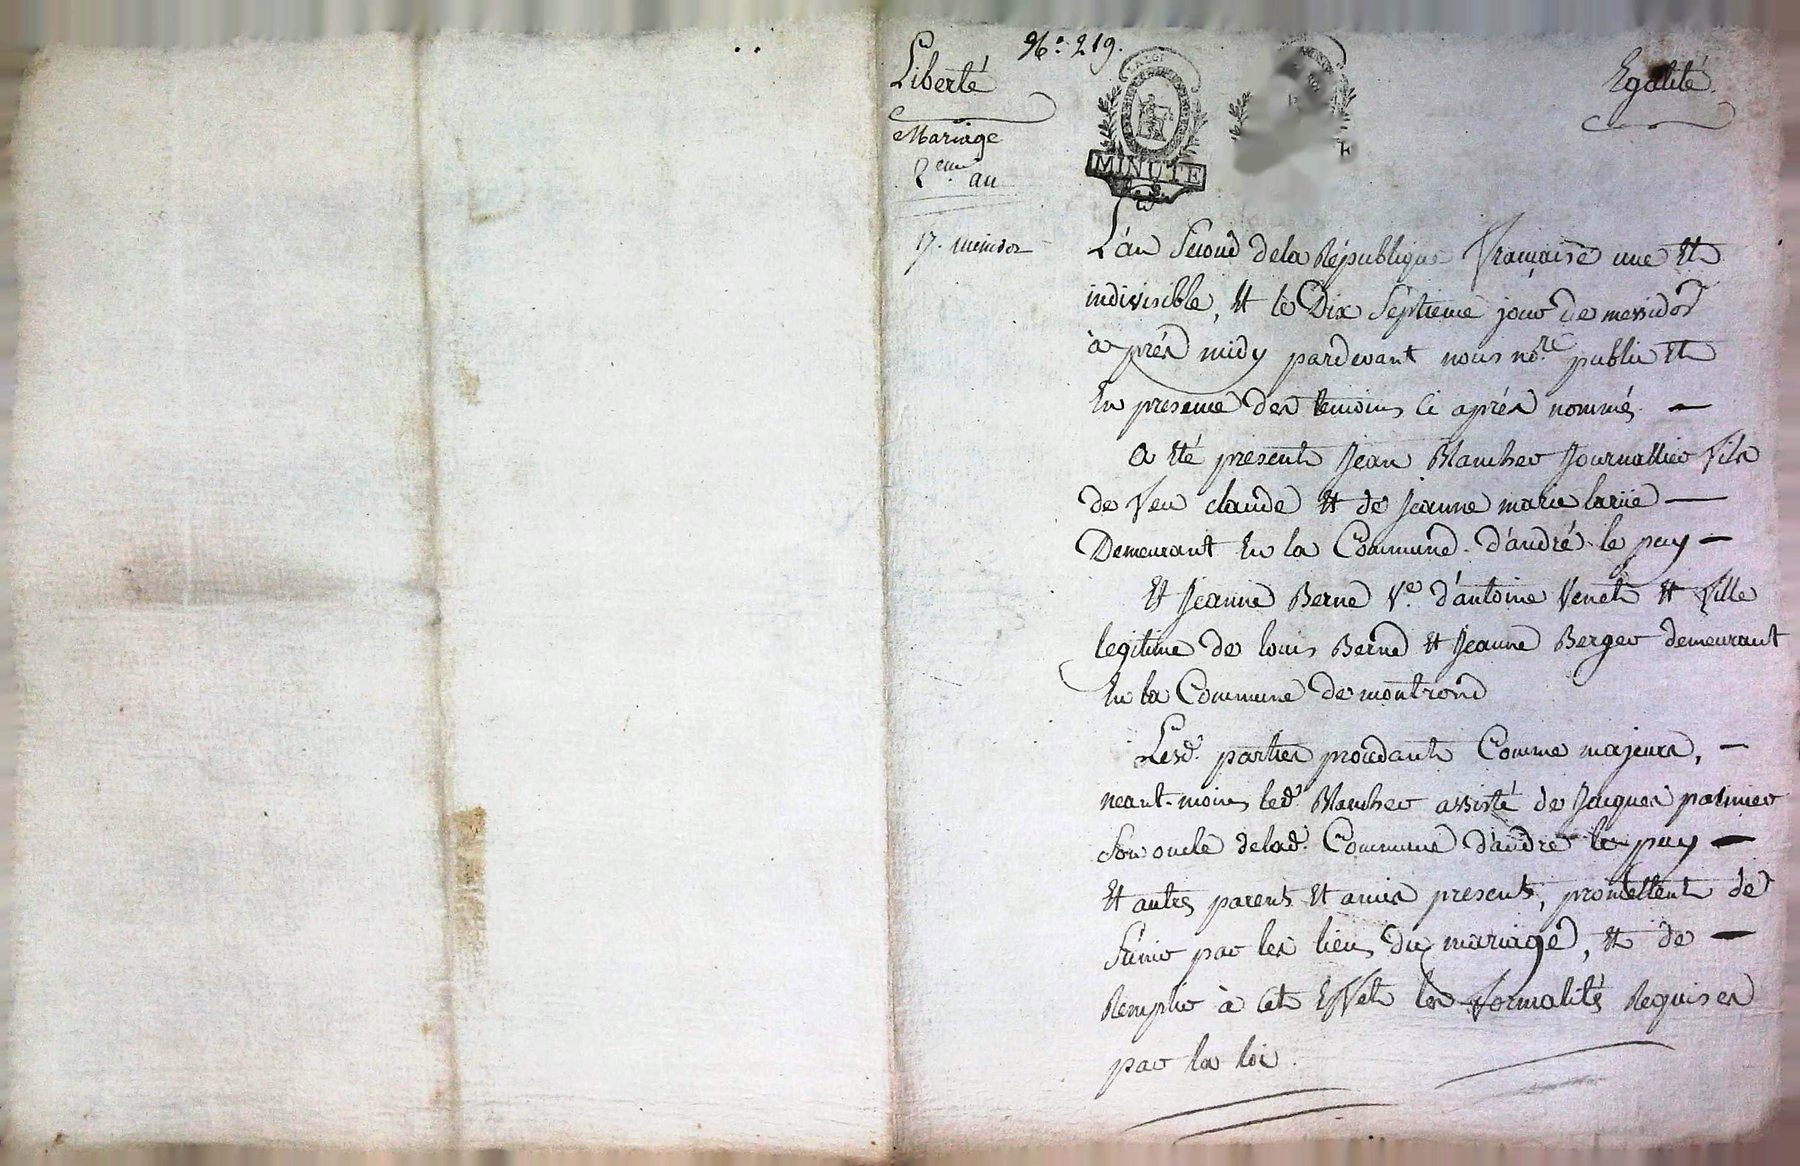 N.° 219.
Liberté
Egalité.
Mariage
2.eme an
17. messidor
MINUTE
L'an second de la République française une et
indivisible, et le Dix septieme jour de messidor
après midy pardevant nous no.re public et
En presence des temoins ci après nommés. —
a été present Jean Blancher Journallier fils
de feu claude et de Jeanne marie larüe —
Demeurant En la Commune d'andré le puy —
Et Jeanne Berne V.e d'antoine Venet et fille
legitime de louis Berne et Jeanne Berger demeurant
En la Commune de montrond
Lesd. parties procedants Comme majeurs, —
neant-moins led. Blancher assisté de Jacques palmier
son oncle de lad. Commune d'andré le puy —
Et autres parents et amis presents, promettent de
s'unir par les liens du mariage, et de —
Remplir à cet Effet les formalités Requises
par la loi.